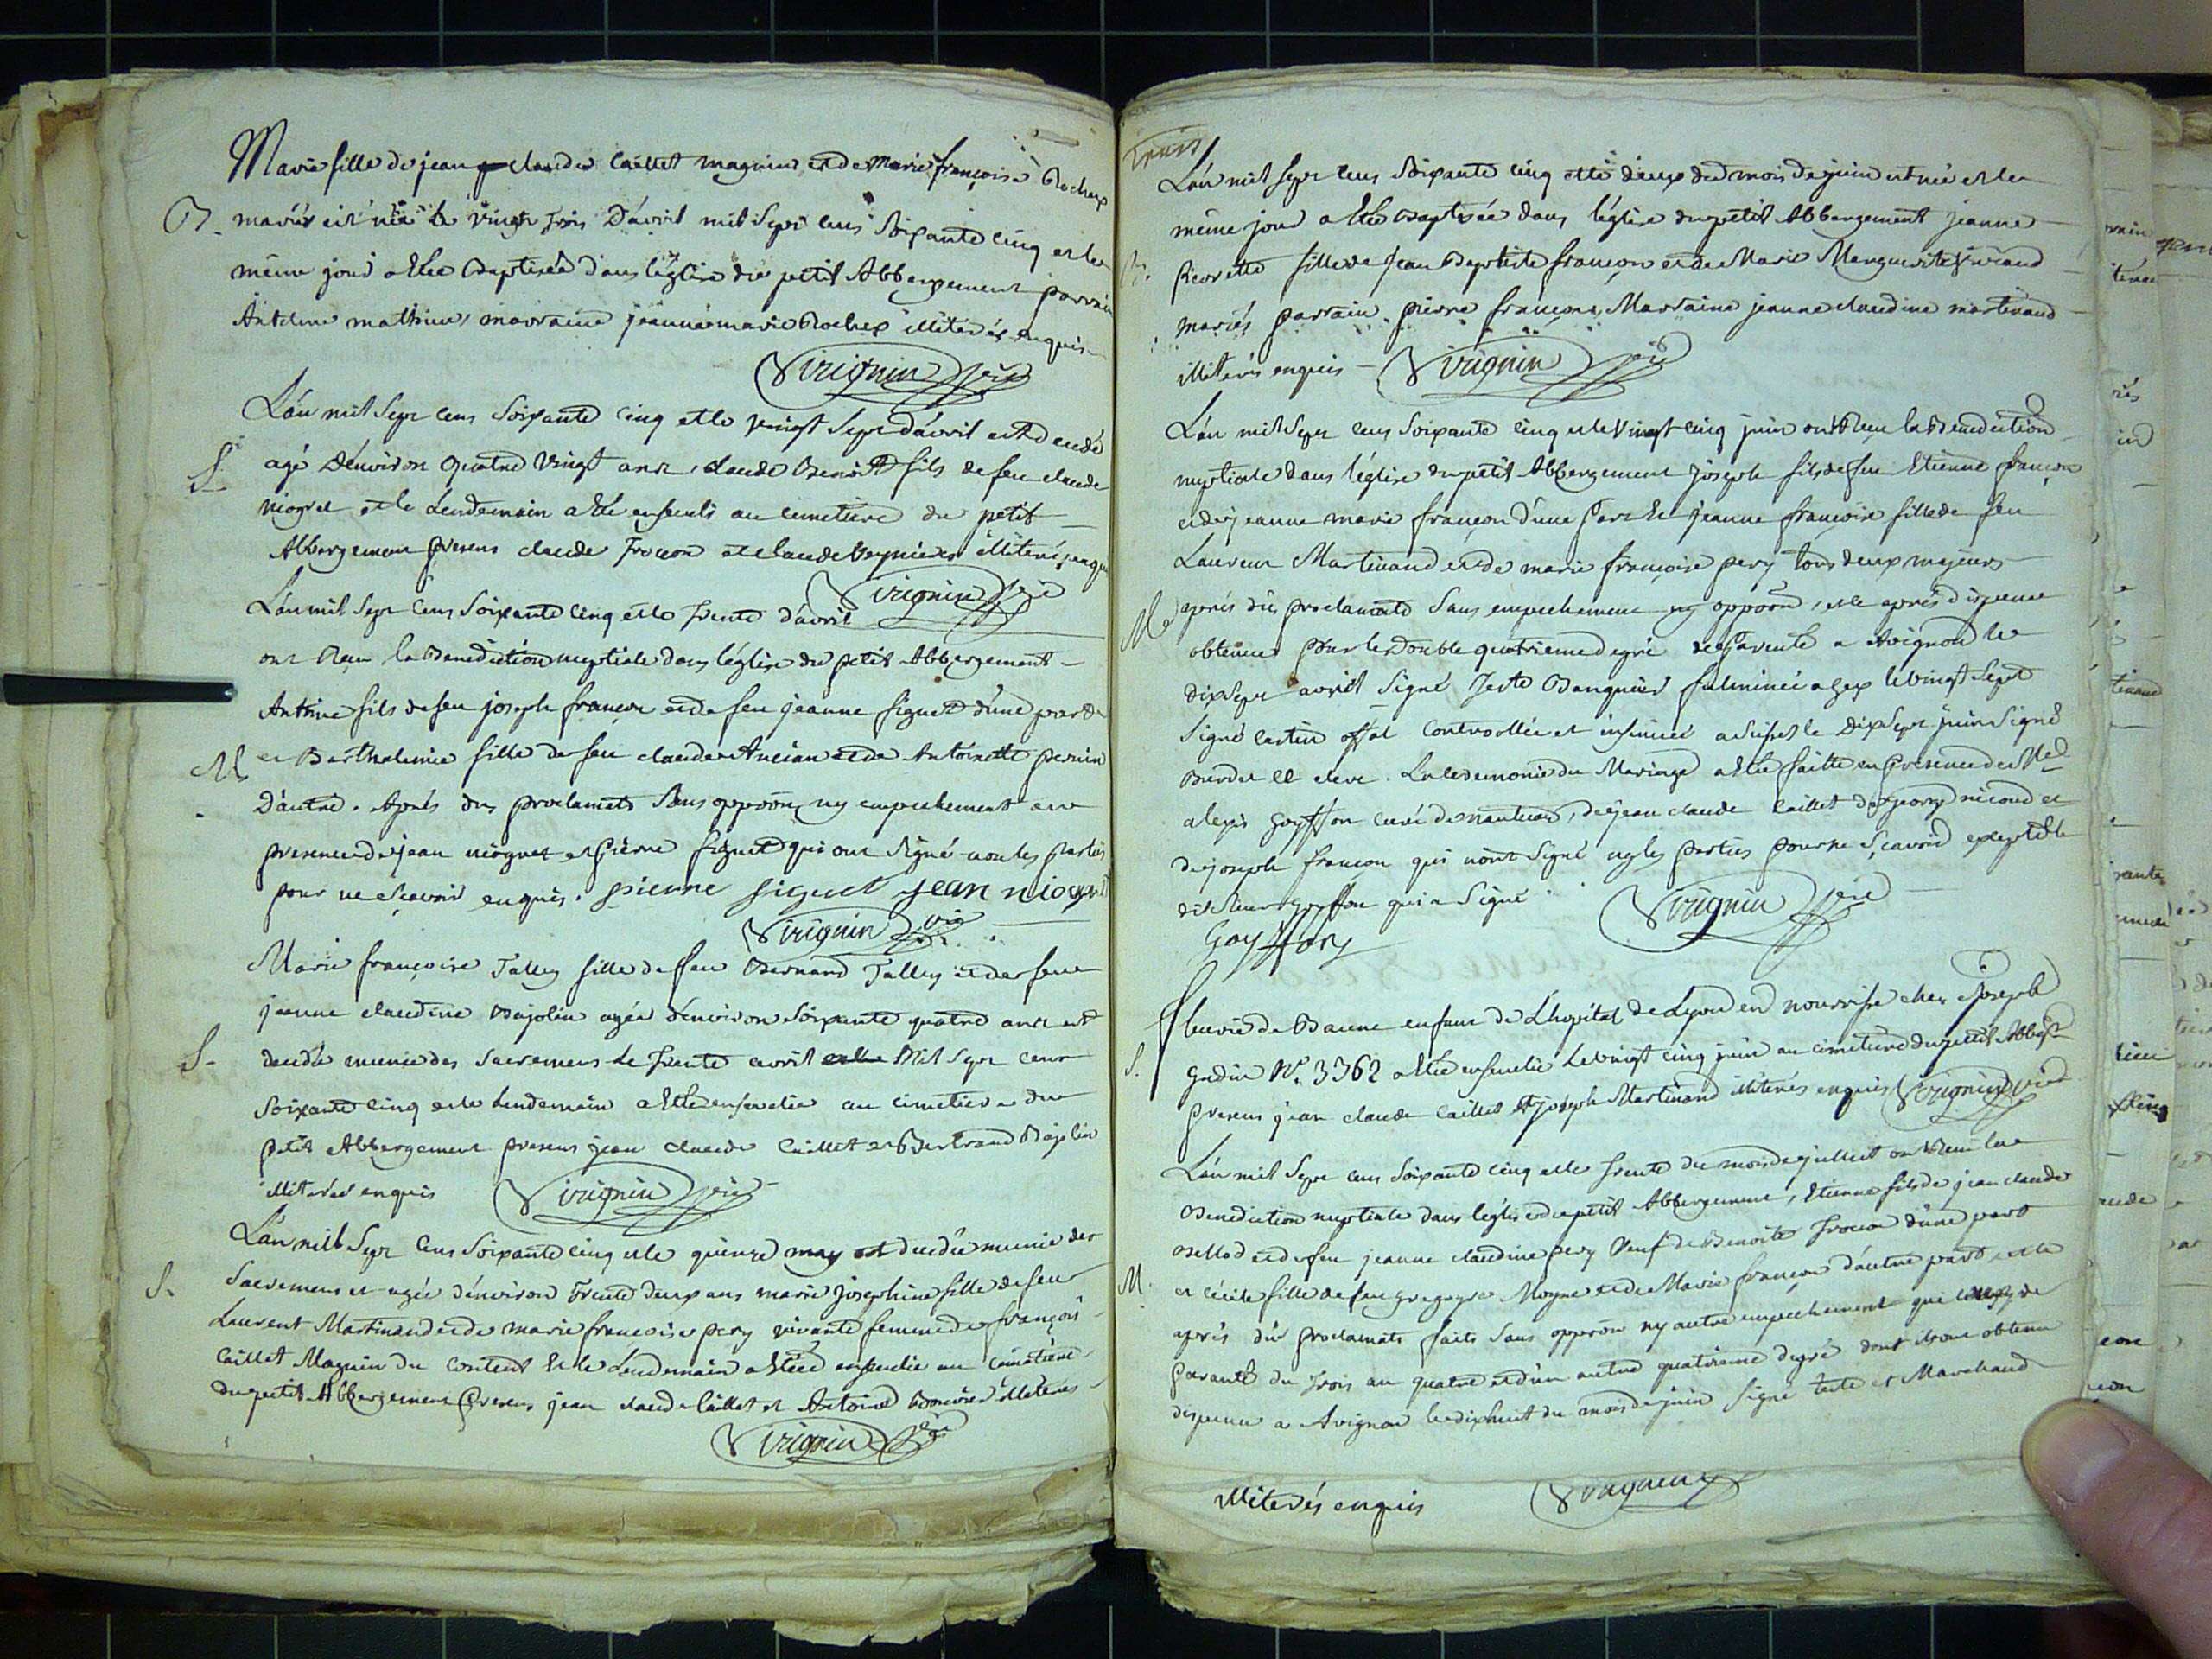 Marie fille de jean claude Caillet magnin et de Marie françoise Rochex
B. mariés est née le vingt trois D'avril mil Sept cens Soixante cinq et le
même jour a Eté Baptisée dans léglise du petit Abbergement parrain
Antelme mathieu, marraine jeanne marie Rochex illiterés enquis
Virignin
L'an mil Sept cens Soixante cinq et le vingt Sept d'avril est decedé
S. agé d'environ quatre vingt ans, claude Benoît fils de feu claude
niogret et le Lendemain a Eté enseveli au cimetiere du petit
Abbergement presens claude françon et claude illiterés enquis
Virignin
L'an mil Sept cens Soixante cinq et le trente d'avril
ont Reçu la Benediction nuptiale dans léglise du petit Abbergement
Antoine fils de feu joseph françon et de feu jeanne figuet d'une part
M et Barthelemie fille de feu claude Ancian et de Antoinette pernin
D'autre. Après dûs proclamats Sans oppoon ny empechement en
presence de jean niogret et Pierre figuet qui ont Signé non les Parties
pour ne Sçavoir enquis. pierre figuet jean niogret
Virignin
Marie françoise Talley fille de feu Bernard Talley et de feue
jeanne claudine Bajolin agée d'environ Soixante quatre ans est
S. decedée munie des Sacremens le trente avril Mil Sept cens
Soixante cinq et le Lendemain a Eté ensevelie au cimetiere du
petit Abbergement presens jean claude Caillet et Bertrand Bajolin
illiterés enquis Virignin
L'an mil Sept Cens Soixante cinq et le quinze may est decedée munie des
S. Sacremens et agée d'environ Trente deux ans marie josephine fille de feu
Laurent Martinand et de marie francoise pery vivante femme de françois
Caillet Magnin du content Et le Lendemain a Eté ensevelie au Cimetiere
du petit Abbergement Presens jean claude Caillet et Antoine illiterés
Virignin
Trois
L'an mil Sept cens Soixante cinq et le deux du mois de juin est née et le
même jour a Eté Baptisée dans léglise du petit Abbergement jeanne
B. Pierrette fille de Jean Baptiste françon et de Marie Marguerite
mariés parrain pierre françon, Marraine jeanne claudine martinand
illiterés enquis Virignin
L'an mil Sept cens Soixante cinq et le vingt cinq juin ont Reçu la Benediction
nuptiale dans léglise du petit Abbergement joseph fils de feu Etienne françon
et de jeanne marie françon d'une Part Et jeanne françoise fille de feu
Laurent Martinand et de marie françoise pery tous deux majeurs
M après dûs proclamats Sans empechement ny oppoon, et après dispense
obtenue pour le double quatrieme degré de Parenté a Avignon le
dix Sept avril Signé Teste Banquier fulminée a gex le vingt Sept
Signé castin offal Controollée et insinuée a le dix Sept juin Signé
. La Ceremonie du Mariage a Eté faitte en Presence de
alexis goyffon curé de nantuad, de jean claude Caillet de george nicoud et
de joseph françon qui n'ont Signé ny les parties pour ne Sçavoir excepté le
dit Sieur goyffon qui a Signé Virignin
Goyffon
fleurie de Baune enfant de L'hopital de Lyon en nourrisse chez Joseph
S. gudin N°. 3362 a Eté ensevelie Le vingt cinq juin au cimetiere du petit Abbergt
presens jean claude Caillet et joseph Martinand illiterés enquis Virignin
L'an mil Sept cens Soixante cinq et le trente du mois de juillet ont Reçu la
Benediction nuptiale dans léglise du petit Abbergement, Etienne fils de jean claude
et de feu jeanne claudine pery Veuf de Benoite françon d'une part
M. et cécile fille de feu gregoyre Moyne et de Marie françon d'autre part, et le
après dûs proclamats faits Sans oppoon ny autre empechement que celuy de
Parenté du trois au quatre et d'un autre quatrieme degré dont ils ont obtenu
dispense a Avignon le dixhuit du mois de juin Signé teste et Marchand
illiterés enquis Virignin